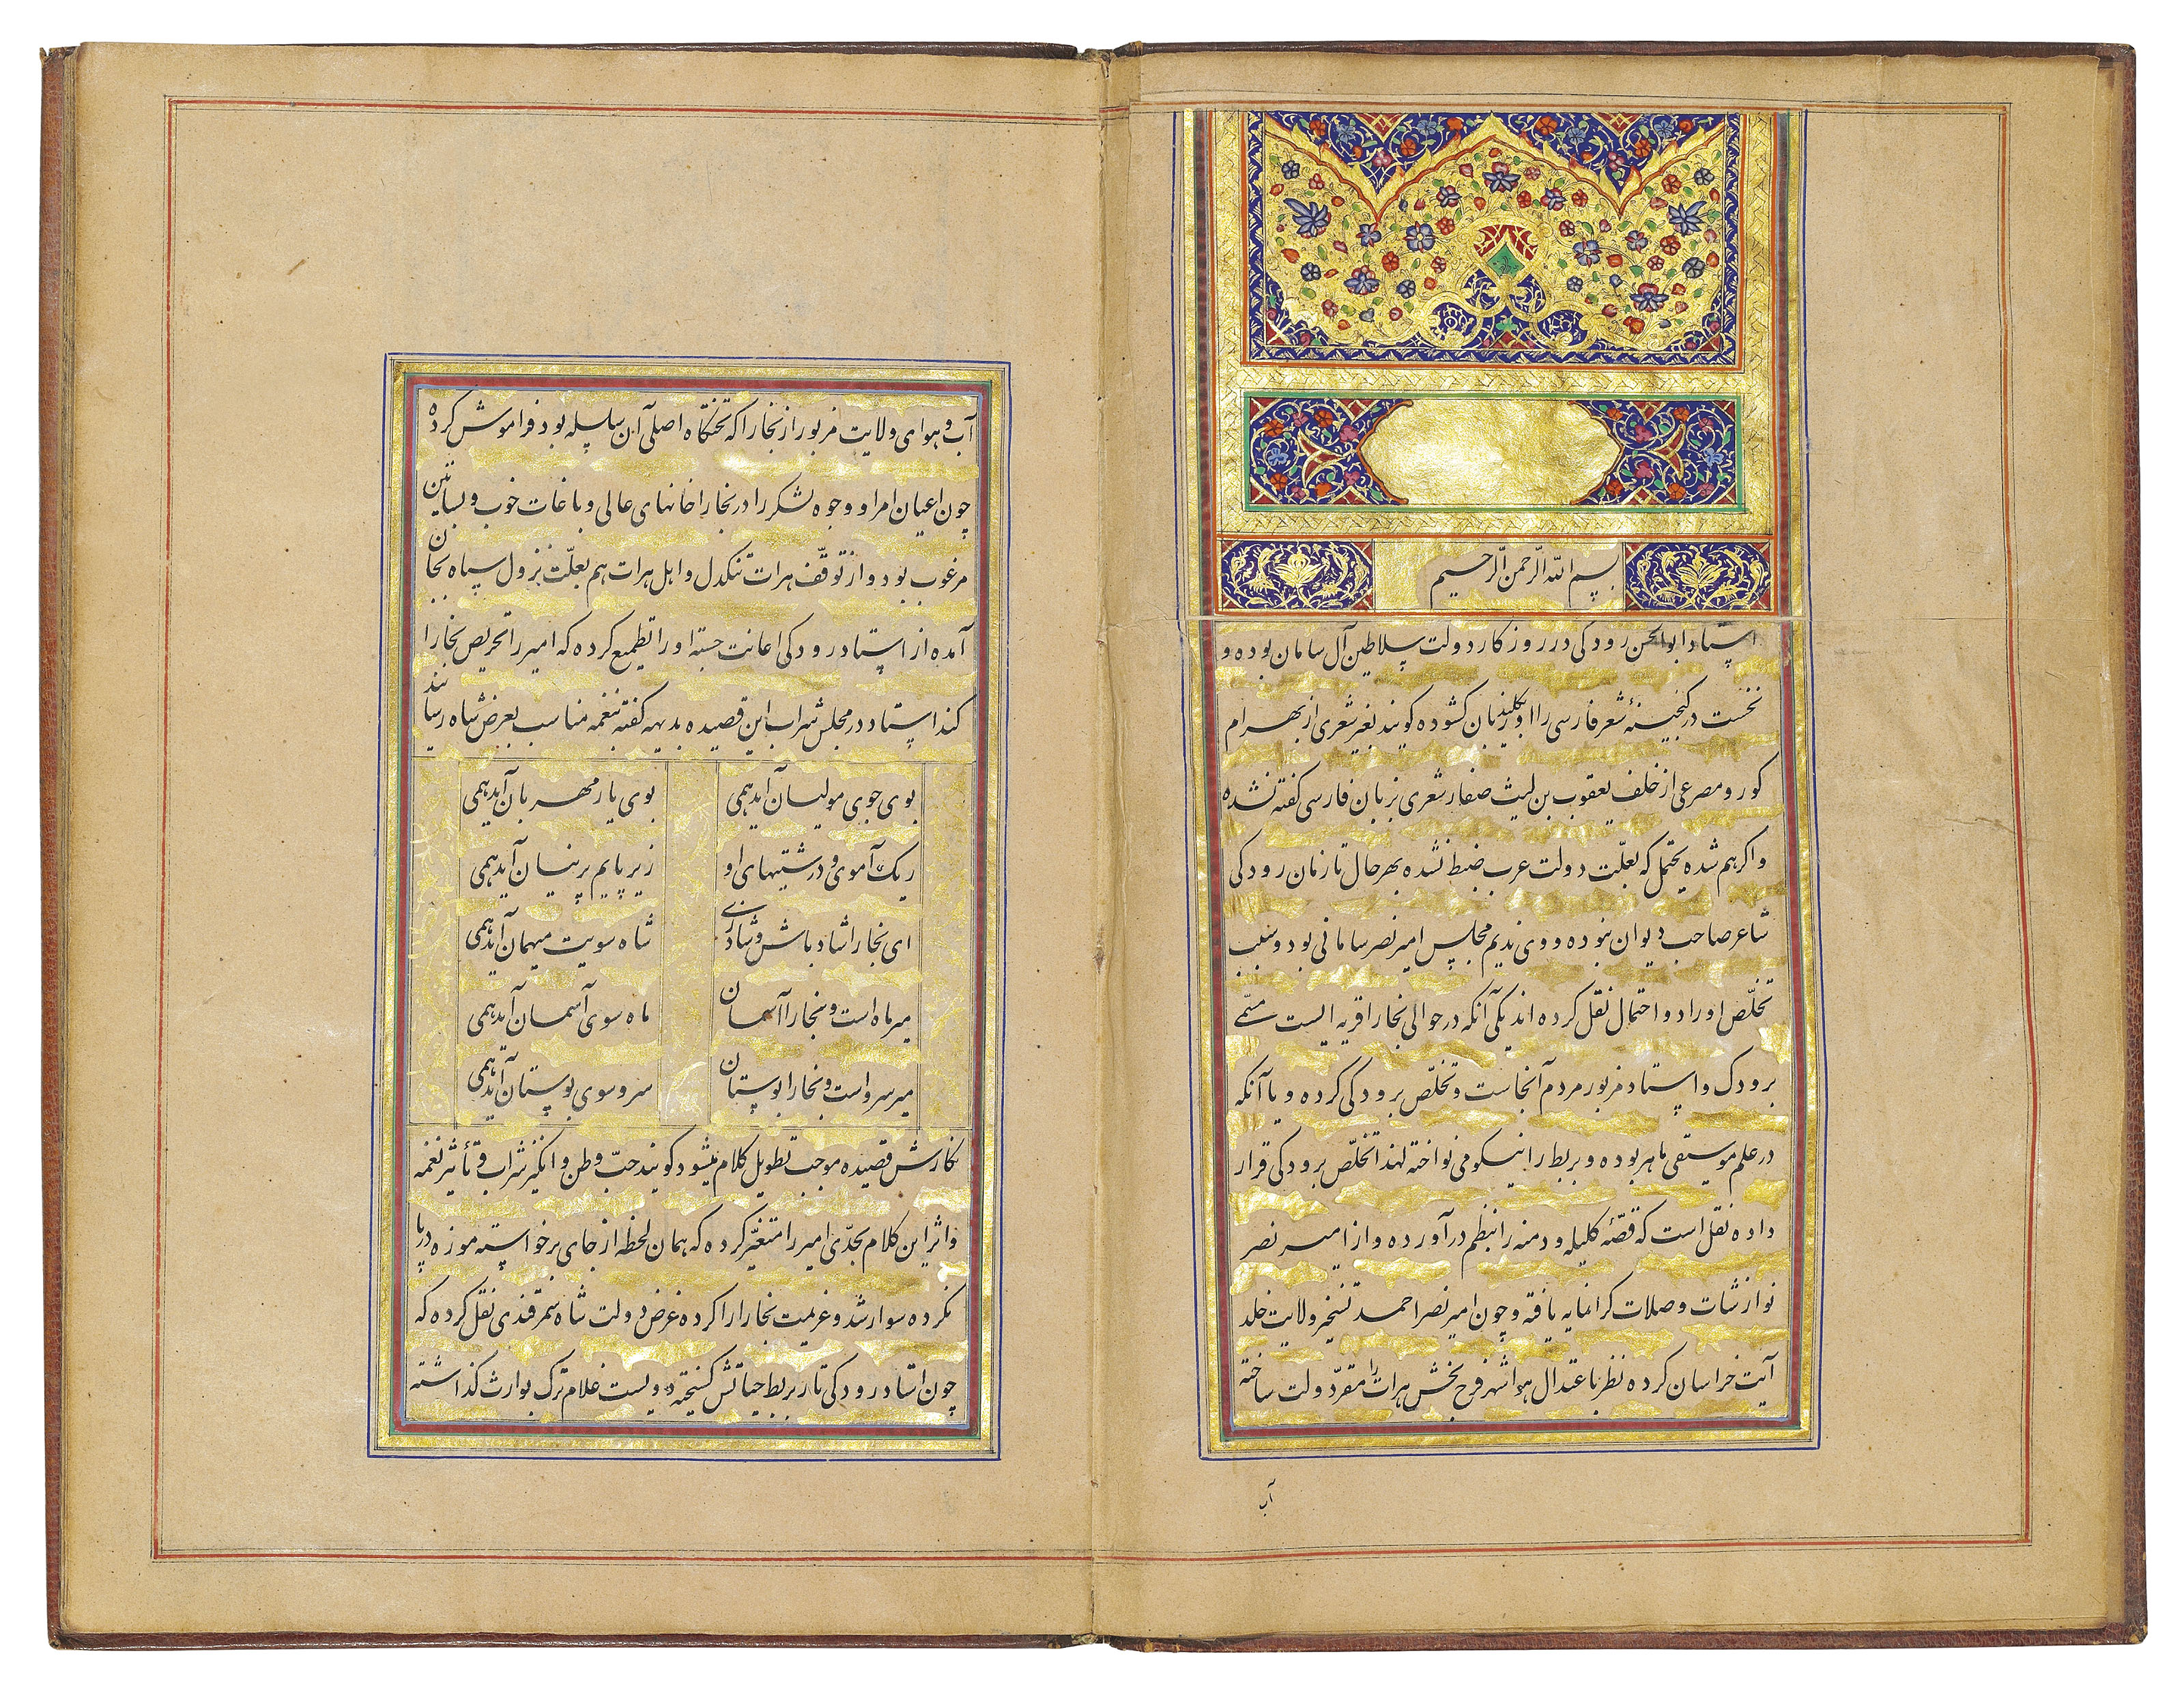 بسم الله الرحمن الرحیم
استاد ابوالحسن رودکی در روزکار دولت سلاطین آل سامان بوده و
نخست در کنجینهٔ شعر فارسی را او بکلید زبان کشوده کویند بغیر شعری از بهرام
کور و مصرعی از خلف یعقوب بن لیث صفار شعری بزبان فارسی کفته نشده
و اکر هم شده یحتمل که بعلّت دولت عرب ضبط نشده بهرحال تا زمان رودکی
شاعر صاحب دیوان نبوده و وی ندیم مجلس امیر نصر سامانی بود و سبب
تخلّص او را دو احتمال نقل کرده اند یکی آنکه در حوالی بخارا قریه ایست مسمّی
برودک و استاد مزبور مردم آنجاست و تخلّص برودکی کرده و یا آنکه
در علم موسیقی ماهر بوده و بربط را نیکو می نواخته لهذا تخلّص برودکی قرار
داده نقل است که قصّهٔ کلیله و دمنه را بنظم در آورده و از امیر نصر
نوازشات و صلات کرانمایه یافته و چون امیر نصر احمد تسخیر ولایت خلد
آیت خراسان کرده نظر باعتدال هوا شهر فرح بخش هرات را مقرّ دولت ساخته
آب
آب و هوای ولایت مزبور از بخارا که تختکاه اصلی آن سلسله بود فراموش کرده
چون اعیان امرا و وجوه لشکر را در بخارا خانهای عالی و باغات خوب و بساتین
مرغوب بود و از توقّف هرات تنکدل و اهل هرات هم بعلّت نزول سپاه بجان
آمده از استاد رودکی اعانت جسته او را تطمیع کرده که امیر را تحریص بخارا
کند استاد در مجلس شراب این قصیده بدیهه کفته بنغمه مناسب بعرض شاه رسانید
بوی جوی مولیان آید همی بوی یار مهربان آید همی
ریک آموی و درشتیهای او زیر پایم پرنیان آید همی
ای بخارا شاد باش و شاد زی شاه سویت میهمان آید همی
میر ماه است و بخارا آسمان ماه سوی آسمان آید همی
میر سرو است و بخارا بوستان سرو سوی بوستان آید همی
نکارش قصیده موجب تطویل کلام میشود کویند حبّ وطن و انکیز شراب و تأثیر نغمه
و اثر این کلام بحدّی امیر را متغیّر کرده که همان لحظه از جای برخواسته موزه در پا
نکرده سوار شد و عزیمت بخارا را کرده غرض دولت شاه سمرقندی نقل کرده که
چون استاد رودکی تار بربط حیاتش کسیخته دویست غلام ترک بوارث کذاشته